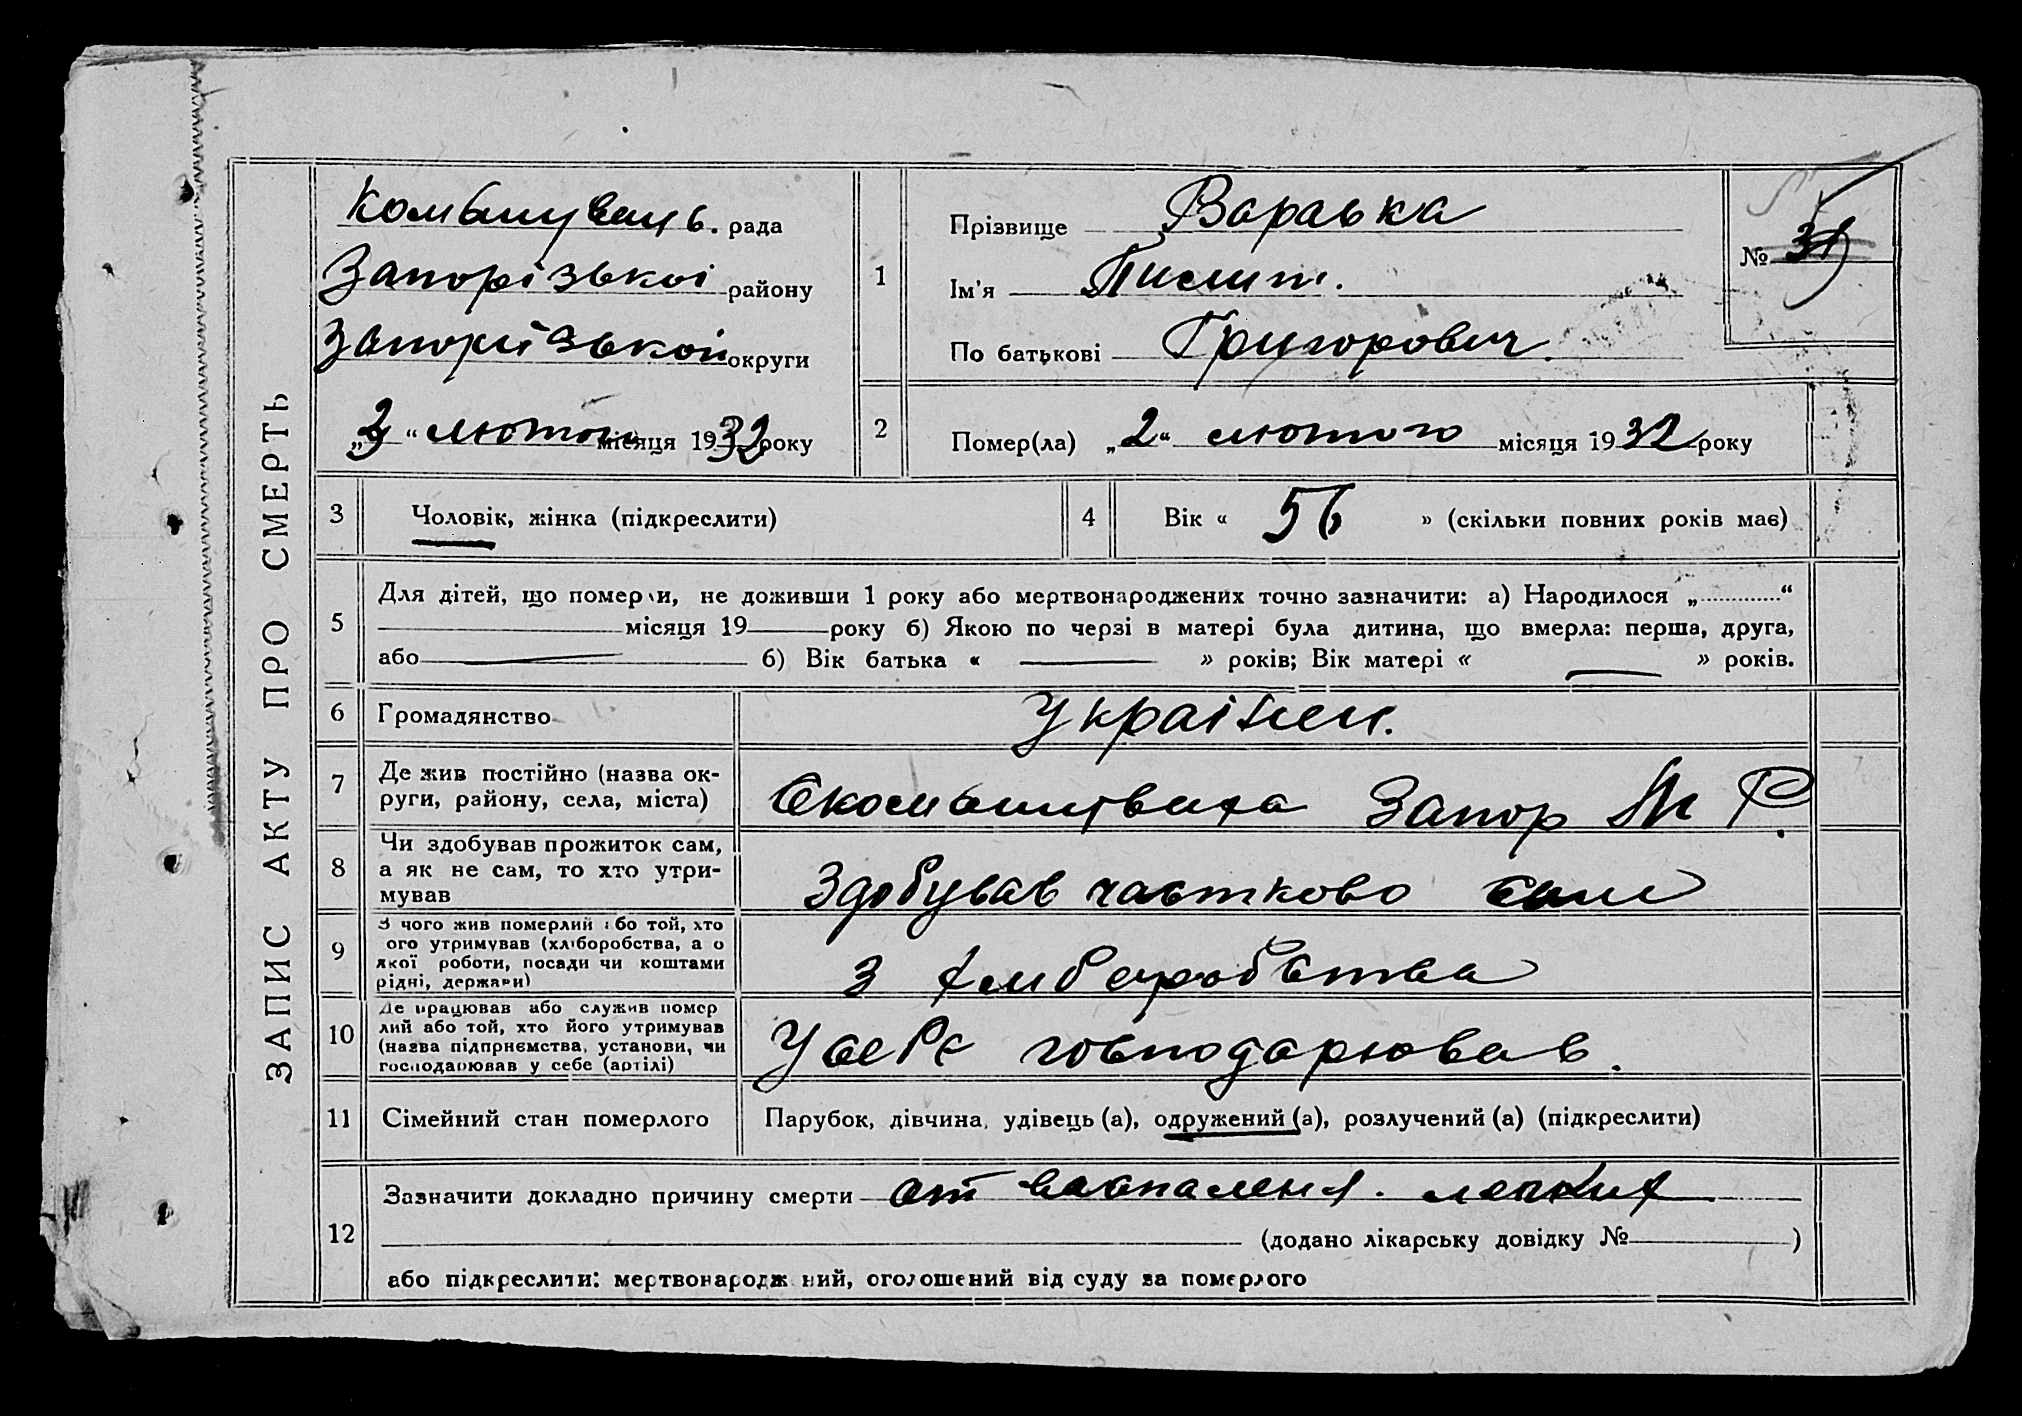 ЗАПИС АКТУ ПРО СМЕРТЬ
Комишувась. рада
Запорізькоі району
Запоризькой округи
„3“ лютого місяця 1932 року
1
Прізвище Вараъка
Ім'я
По батькові Григорович.
№ 31
2
Помер(ла) „2“ лютого місяця 1932 року
3
Чоловік, жінка (підкреслити)
4
Вік « 56 » (скільки повних років має)
5
Для дітей, що померли, не доживши 1 року або мертвонароджених точно зазначити: а) Народилося „............“
місяця 19 року б) Якою по черзі в матері була дитина, що вмерла: перша, друга,
або б) Вік батька « » років; Вік матері « » років.
6
Громадянство
Украінец.
7
Де жив постійно (назва ок-
руги, району, села, міста)
Запор Р.
8
Чи здобував прожиток сам,
а як не сам, то хто утри-
мував
Здобував частково сам
9
З чого жив померлий або той, хто
ого утримував (хліборобства, а о
якої роботи, посади чи коштами
рідні, держави)
з хлиборобства
10
Де працював або служив помер
лий або той, хто його утримував
(назва підприємства, установи, чи
господарював у себе (артілі)
У себе господарював.
11
Сімейний стан померлого
Парубок, дівчина, удівець (а), одружений (а), розлучений (а) (підкреслити)
12
Зазначити докладно причину смерти от васпаленя. легких
(додано лікарську довідку № )
або підкреслити: мертвонароджений, оголошений від суду за померлого